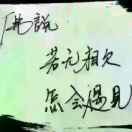 佛说
若无相欠
怎会遇见